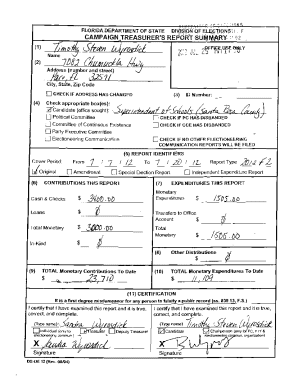 FLORIDA DEPARTMENT OF STATE DIVISION OF ELECTIONS
CAMPAIGN TREASURER'S REPORT SUMMARY
(1) Timothy Steven Wyrosdick
Name
OFFICE USE ONLY
(2) 7082 Chumuckla Hwy
Address (number and street)
Pace, FL 32571
City, State, Zip Code
CHECK IF ADDRESS HAS CHANGED
(3) ID Number:
(4) Check appropriate box(es):
Candidate (office sought): Superintendent of Schools (Santa Rosa County)
Political Committee
CHECK IF PC HAS DISBANDED
Committee of Continuous Existence
CHECK IF CCE HAS DISBANDED
Party Executive Committee
Electioneering Communication
CHECK IF NO OTHER ELECTIONEERING
COMMUNICATION REPORTS WILL BE FILED
(5) REPORT IDENTIFIERS
Cover Period From 7 / 7 / 12 To 7 / 20 / 12 Report Type 2012 F2
Original Amendment Special Election Report Independent Expenditure Report
(6) CONTRIBUTIONS THIS REPORT
(7) EXPENDITURES THIS REPORT
Cash & Checks $
Monetary
Expenditures $ 1505.00
Loans $ 0
Transfers to Office
Account $ 0
Total Monetary $
Total
Monetary $ 1505.00
In-Kind $ 0
(8) Other Distributions
$ 0
(9) TOTAL Monetary Contributions To Date
$ 23,710
(10) TOTAL Monetary Expenditures To Date
$ 11,109
(11) CERTIFICATION
It is a first degree misdemeanor for any person to falsify a public record (ss. 839.13, F.S.)
I certify that I have examined this report and it is true,
correct, and complete.
I certify that I have examined this report and it is true,
correct, and complete.
(Type name) Sandra Wyrosdick
(Type name) Timothy Steven Wyrosdick
Treasurer Deputy Treasurer
Candidate
X Sandra Wyrosdick
X
Signature
Signature
DS-DE 12 (Rev. 08/04)